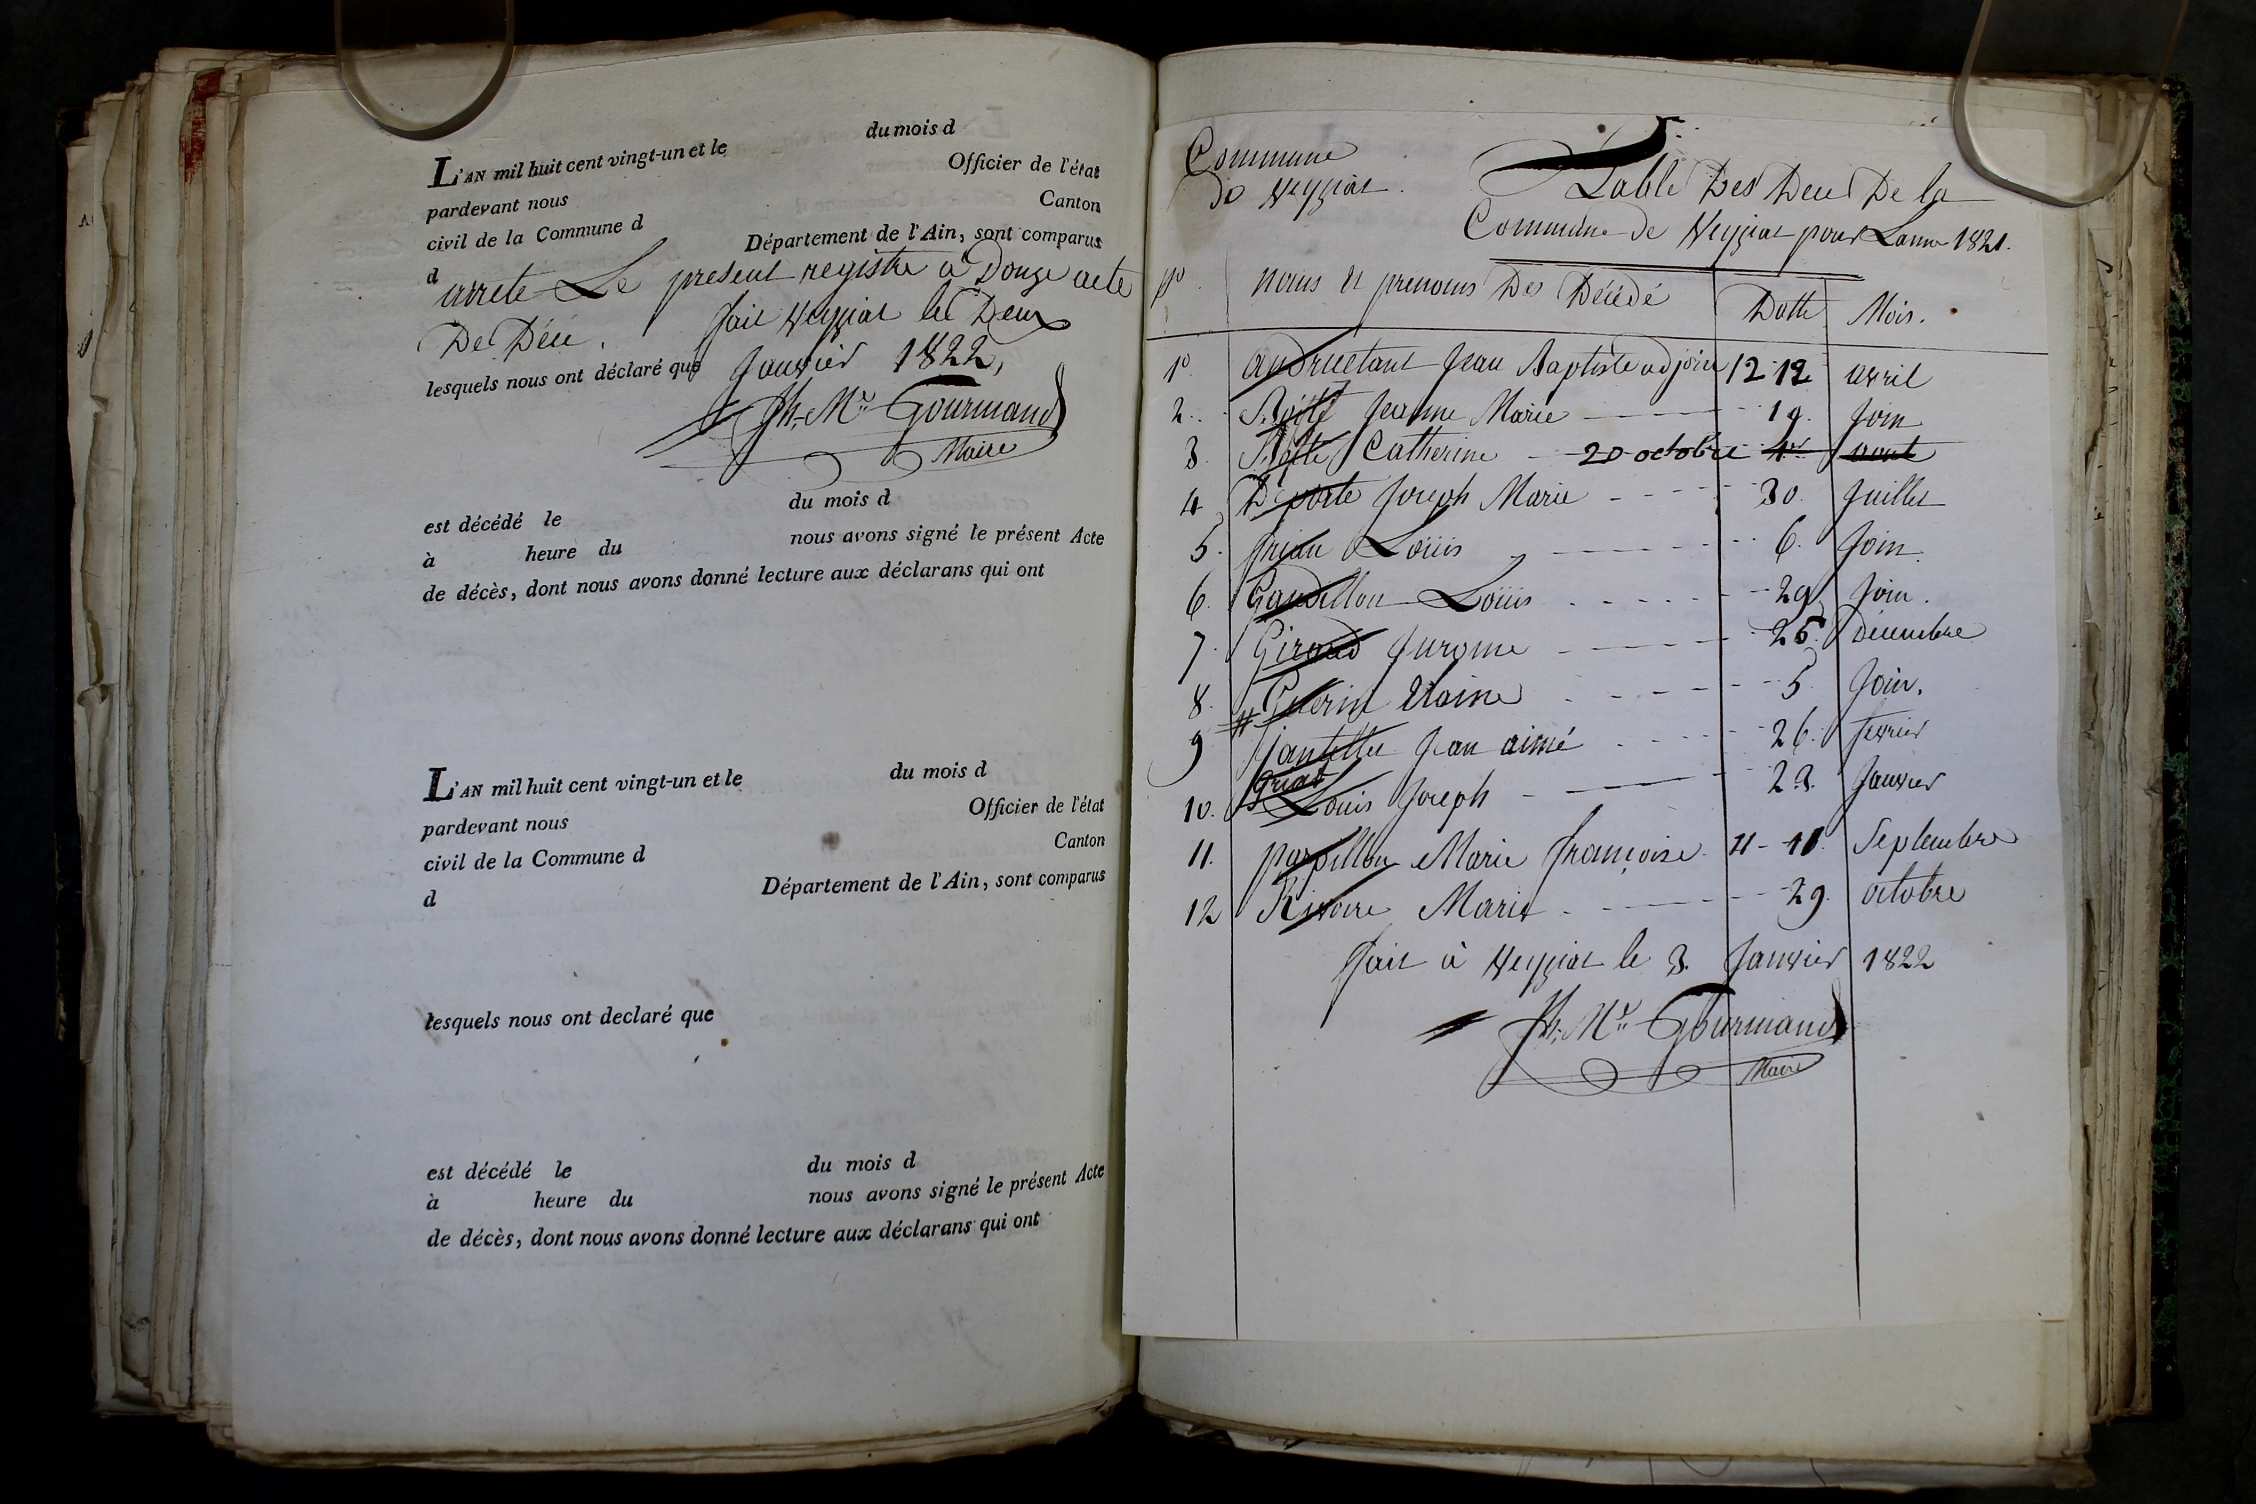 du mois d
L'AN mil huit cent vingt-un et le
Officier de l'état
pardevant nous
Canton
civil de la Commune d
Département de l'Ain, sont comparus
d
arrete Le present registre a Douze acte
De Décé. fait Veyziat le Deux
lesquels nous ont déclaré que Janvier 1822,
Jh. Mie Gourmand
Maire
du mois d
est décédé le
nous avons signé le présent Acte
à heure du
de décès, dont nous avons donné lecture aux déclarans qui ont
L'AN mil huit cent vingt-un et le du mois d
pardevant nous Officier de l'état
civil de la Commune d Canton
d Département de l'Ain, sont comparus
lesquels nous ont declaré que
est décédé le du mois d
à heure du nous avons signé le présent Acte
de décès, dont nous avons donné lecture aux déclarans qui ont
Commune
de Veyziat.
Table Des Decé De la
Commune de Veyziat pour Lanné 1821.
No noms et prenoms Des Décédé Datte Mois.
1o andruetant Jean Baptiste adjoin 12 12 avril
2. Jeanne Marie 19. Join
3. Catherine 20 octobre 1er aout
4 Deporte Joseph Marie 30. Juillet
5. Louis 6. Join
6. Gaudillon Louis 29 Join.
7. Giroud Jurome 25. Décembre
8. Guerin 5 Join.
9 # Jantellet Jean aimé 26. fevrier
griat
10. Louis Joseph 23. Janvier
11. papillon Marie françoise. 11 - 11. Septembre
12 Rivoire Marie 29. octobre
fait à Veyziat le 3. Janvier 1822
Jh. Mie Gourmand
Maire